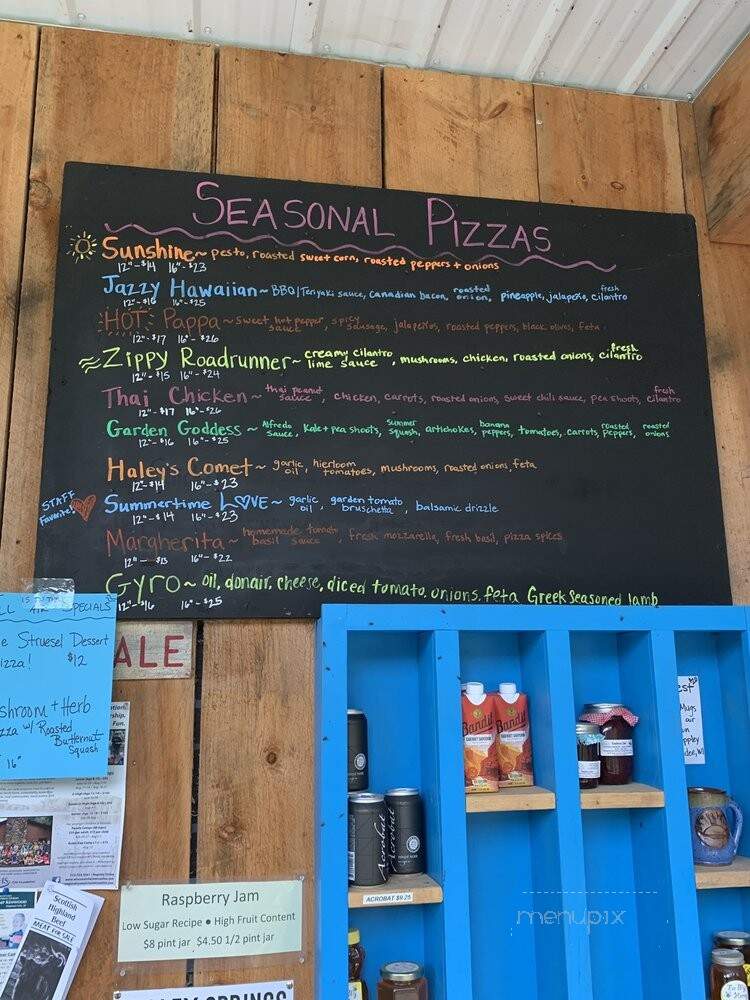 SEASONAL PIZZAS
Sunshine~ pesto, roasted sweet corn, roasted peppers + onions
12"-$14 16"-$23
Jazzy Hawaiian~ BBQ/Teriyaki sauce, Canadian bacon, roasted onion, pineapple, jalapeño, fresh cilantro
12"-$16 16"-$25
HOT Pappa~ sweet hot pepper sauce, spicy sausage, jalapeños, roasted peppers, black olives, feta
12"-$17 16"-$26
Zippy Roadrunner~ creamy cilantro lime sauce, mushrooms, chicken, roasted onions, fresh cilantro
12"-$15 16"-$24
Thai Chicken~ thai peanut sauce, chicken, carrots, roasted onions, sweet chili sauce, pea shoots, fresh cilantro
12"-$17 16"-$26
Garden Goddess~ Alfredo sauce, kale + pea shoots, summer squash, artichokes, banana peppers, tomatoes, carrots, roasted peppers, roasted onions
12"-$16 16"-$25
Haley's Comet~ garlic oil, hierloom tomatoes, mushrooms, roasted onions, feta
12"-$14 16"-$23
STAFF Favorite!
Summertime LOVE~ garlic oil, garden tomato bruschetta, balsamic drizzle
12"-$14 16"-$23
Margherita~ homemade tomato basil sauce, fresh mozzarella, fresh basil, pizza spices
12"-$13 16"-$22
Gyro~ oil, donair, cheese, diced tomato, onions, feta Greek Seasoned lamb
12"-$16 16"-$25
SPECIALS
Struesel Dessert
izza! $12
shroom + Herb
zza w/ Roasted
Butternut
Squash
16"
ALE
Scottish
Highland
Beef
MEAT FOR SALE
Raspberry Jam
Low Sugar Recipe ● High Fruit Content
$8 pint jar $4.50 1/2 pint jar
LEY SPRINGS
Acrobat
Acrobat
ACROBAT $9.25
Bandit
Bandit
Mugs
menupix